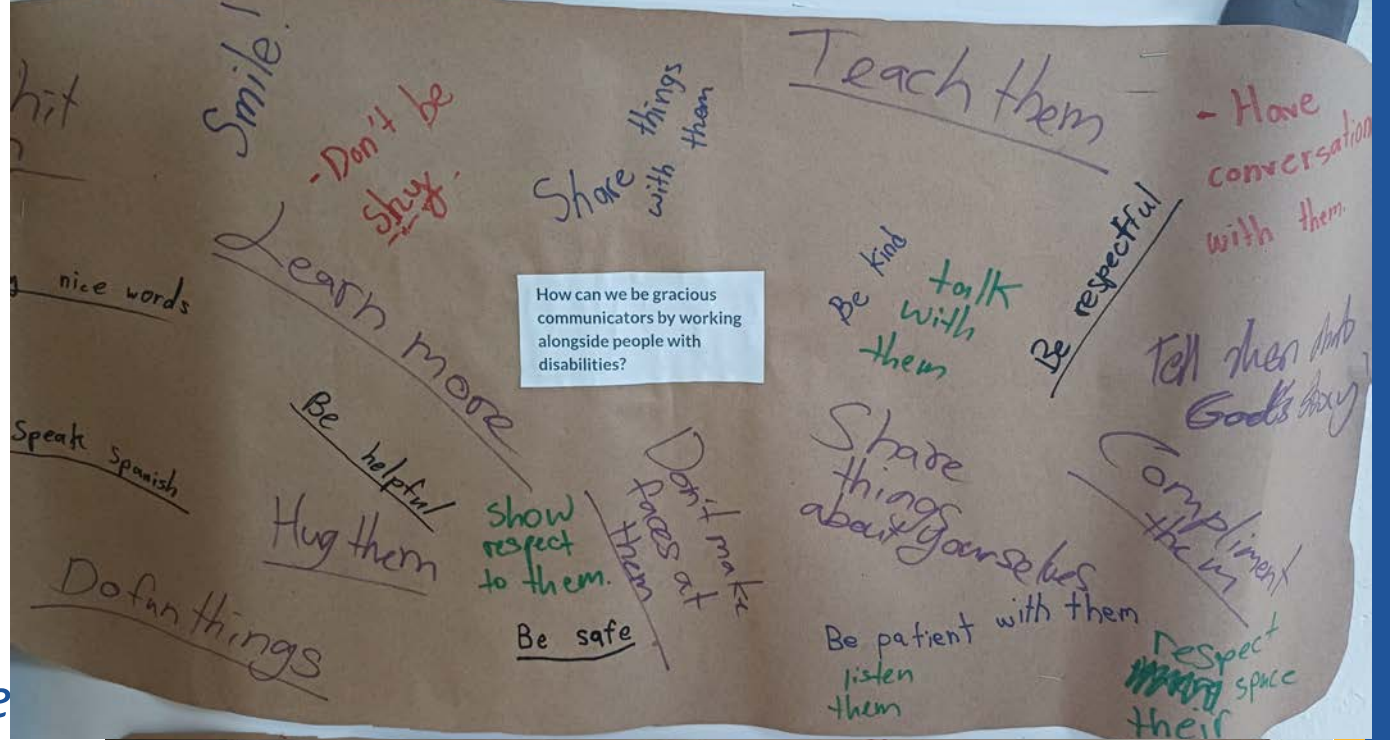 hit
Smile!
- Don't be
shy.
Share things
with them
Teach them
- Have
conversation
with them.
nice words
Learn more
How can we be gracious
communicators by working
alongside people with
disabilities?
Be kind
talk
with
them
Be respectful
Tell them
God's story
Speak Spanish
Be helpful
Hug them
show
respect
to them.
Don't make
faces at
them
Share
things
about yourselves
Compliment
them
Do fun things
Be safe
Be patient with them
listen
them
respect
space
their
e